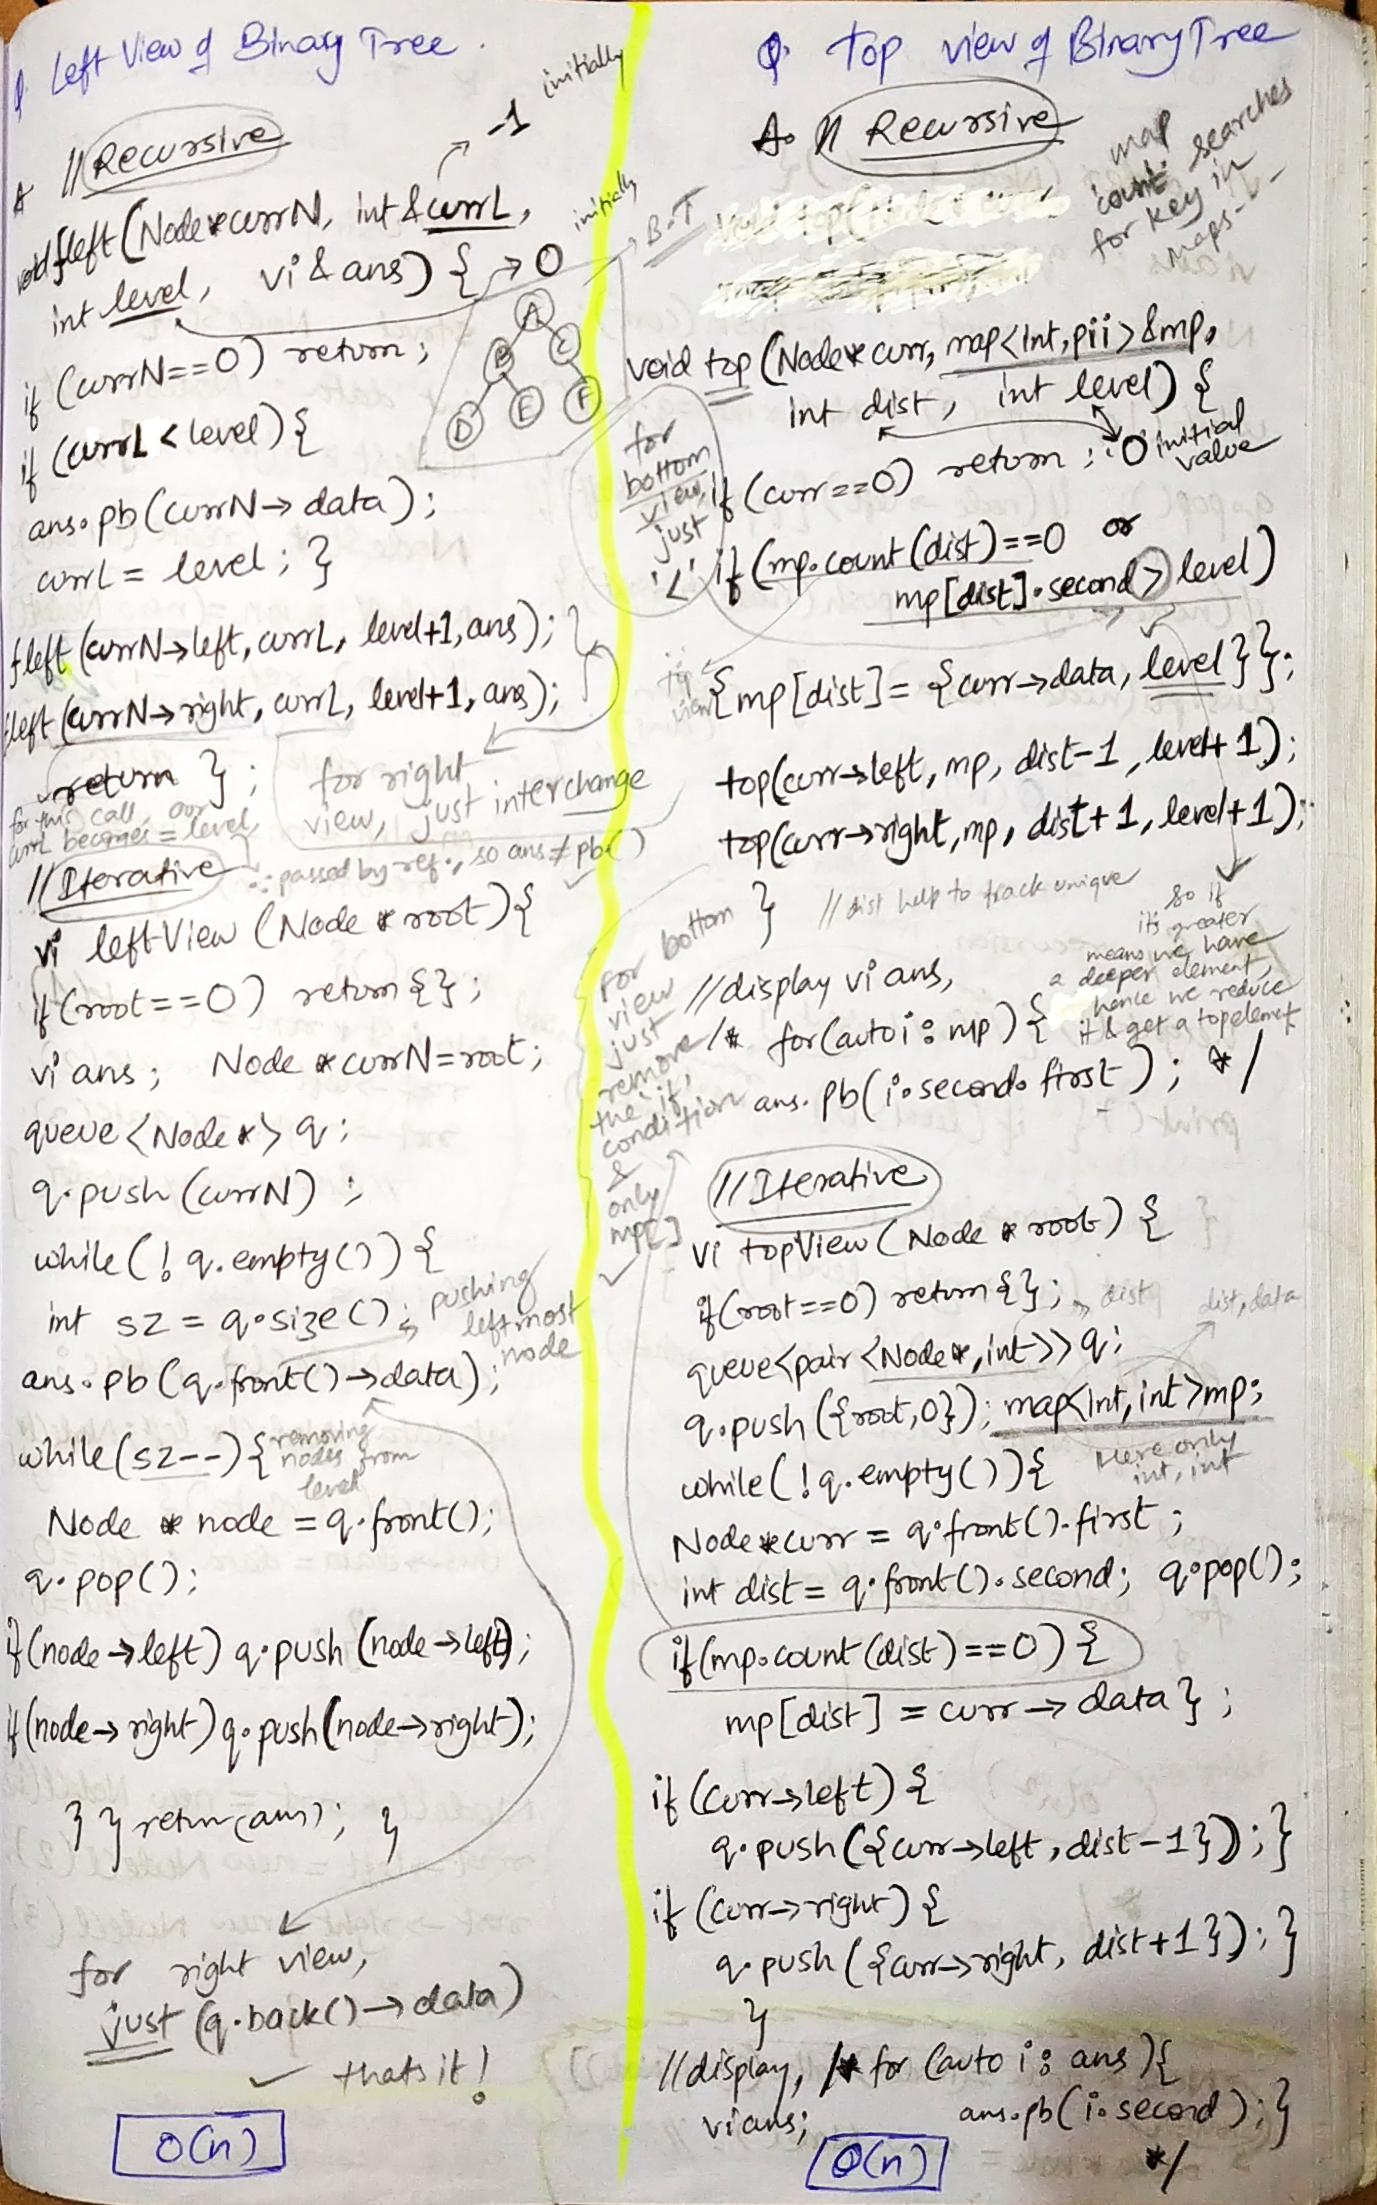 Q. Left View of Binary Tree.
A // Recursive
-1 initially
void fleft(Node*currN, int &currL,
int level, vi &ans) { → 0 initially
B.T
A
B C
D E F
if (currN==0) return;
if (currL < level) {
ans.pb(currN→data);
currL = level; }
fleft (currN→left, currL, level+1, ans);
fleft (currN→right, currL, level+1, ans);
return };
for right
view, just interchange
for this call, our
currL becomes = level,
∵ passed by ref., so ans ≠ pb()
// Iterative
vi leftView (Node *root) {
if (root==0) return {};
vi ans; Node *currN=root;
queue <Node*> q;
q.push(currN);
while(!q.empty()) {
int sz = q.size();
pushing
leftmost
node
ans.pb(q.front()→data);
while(sz--) {
removing
nodes from
level
Node * node = q.front();
q.pop();
if(node→left) q.push(node→left);
if(node→right) q.push(node→right);
} } return(ans); }
for right view,
just (q.back()→data)
✓ thats it!
O(n)
Q. Top view of Binary Tree
A. // Recursive
map
count: searches
for key in
maps
void top (Node* curr, map<int,pii> &mp,
int dist, int level) {
0 initial
value
for
bottom
view,
just
'<'
if (curr==0) return;
if (mp.count(dist)==0 or
mp[dist].second > level)
top
view
{mp[dist] = {curr→data, level}};
top(curr→left, mp, dist-1, level+1);
top(curr→right, mp, dist+1, level+1);
} // dist help to track unique
so if
its greater
means we have
a deeper element,
hence we reduce
it & get a top elemet
// display vi ans,
/* for(auto i : mp) {
ans.pb(i.second.first); */
for bottom
view
just
remove
the 'if'
condition
&
only
mp[]
// Iterative
vi topView(Node *root) {
if(root==0) return {};
dist
dist, data
queue<pair<Node*,int>> q;
q.push({root,0}); map<int,int>mp;
Here only
int, int
while(!q.empty()){
Node*curr = q.front().first;
int dist = q.front().second; q.pop();
if(mp.count(dist)==0) {
mp[dist] = curr→data };
if(curr→left) {
q.push({curr→left, dist-1}); }
if (curr→right) {
q.push({curr→right, dist+1}); }
}
// display, /* for (auto i : ans){
vi ans; ans.pb(i.second); }
*/
O(n)